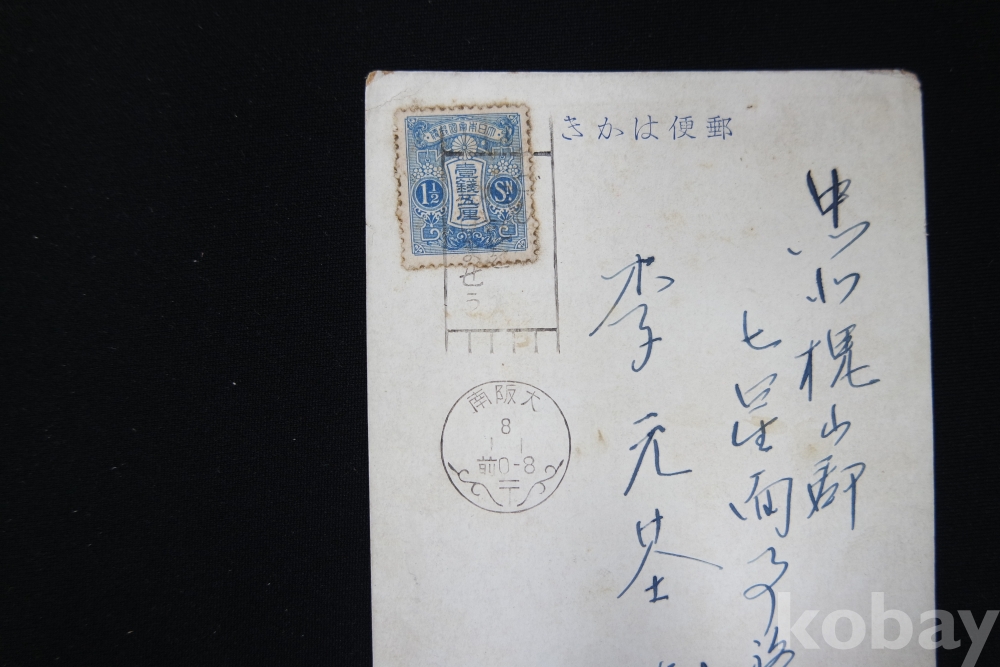 きかは便郵
大日本帝國郵便
壹錢五厘
1½ Sn
南阪大
8
1 1
前0-8
忠北槐山郡
七星面
李元基
kobay